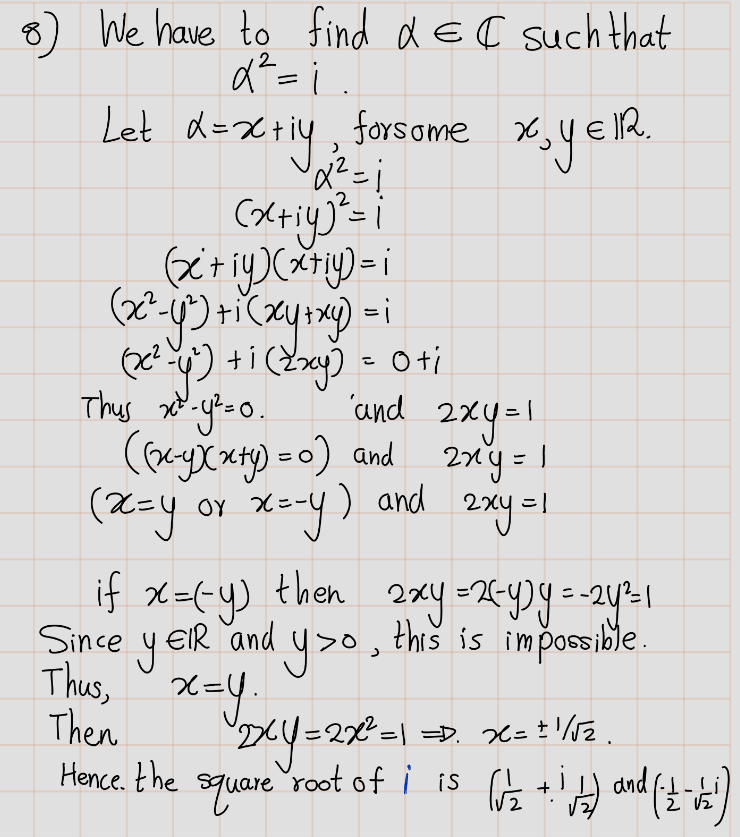 8) We have to find α ∈ ℂ such that
α² = i .
Let α = x + iy , for some x, y ∈ ℝ.
α² = i
(x+iy)² = i
(x + iy)(x+iy) = i
(x² - y²) + i(xy + xy) = i
(x² - y²) + i(2xy) = 0 + i
Thus x² - y² = 0. and 2xy = 1
((x-y)(x+y) = 0) and 2xy = 1
(x = y or x = -y) and 2xy = 1
if x = (-y) then 2xy = 2(-y)y = -2y² = 1
Since y ∈ ℝ and y > 0 , this is impossible.
Thus, x = y.
Then 2xy = 2x² = 1 ⇒. x = ± 1/√2 .
Hence. the square root of i is (1/√2 + i 1/√2) and (-1/2 - 1/√2 i)